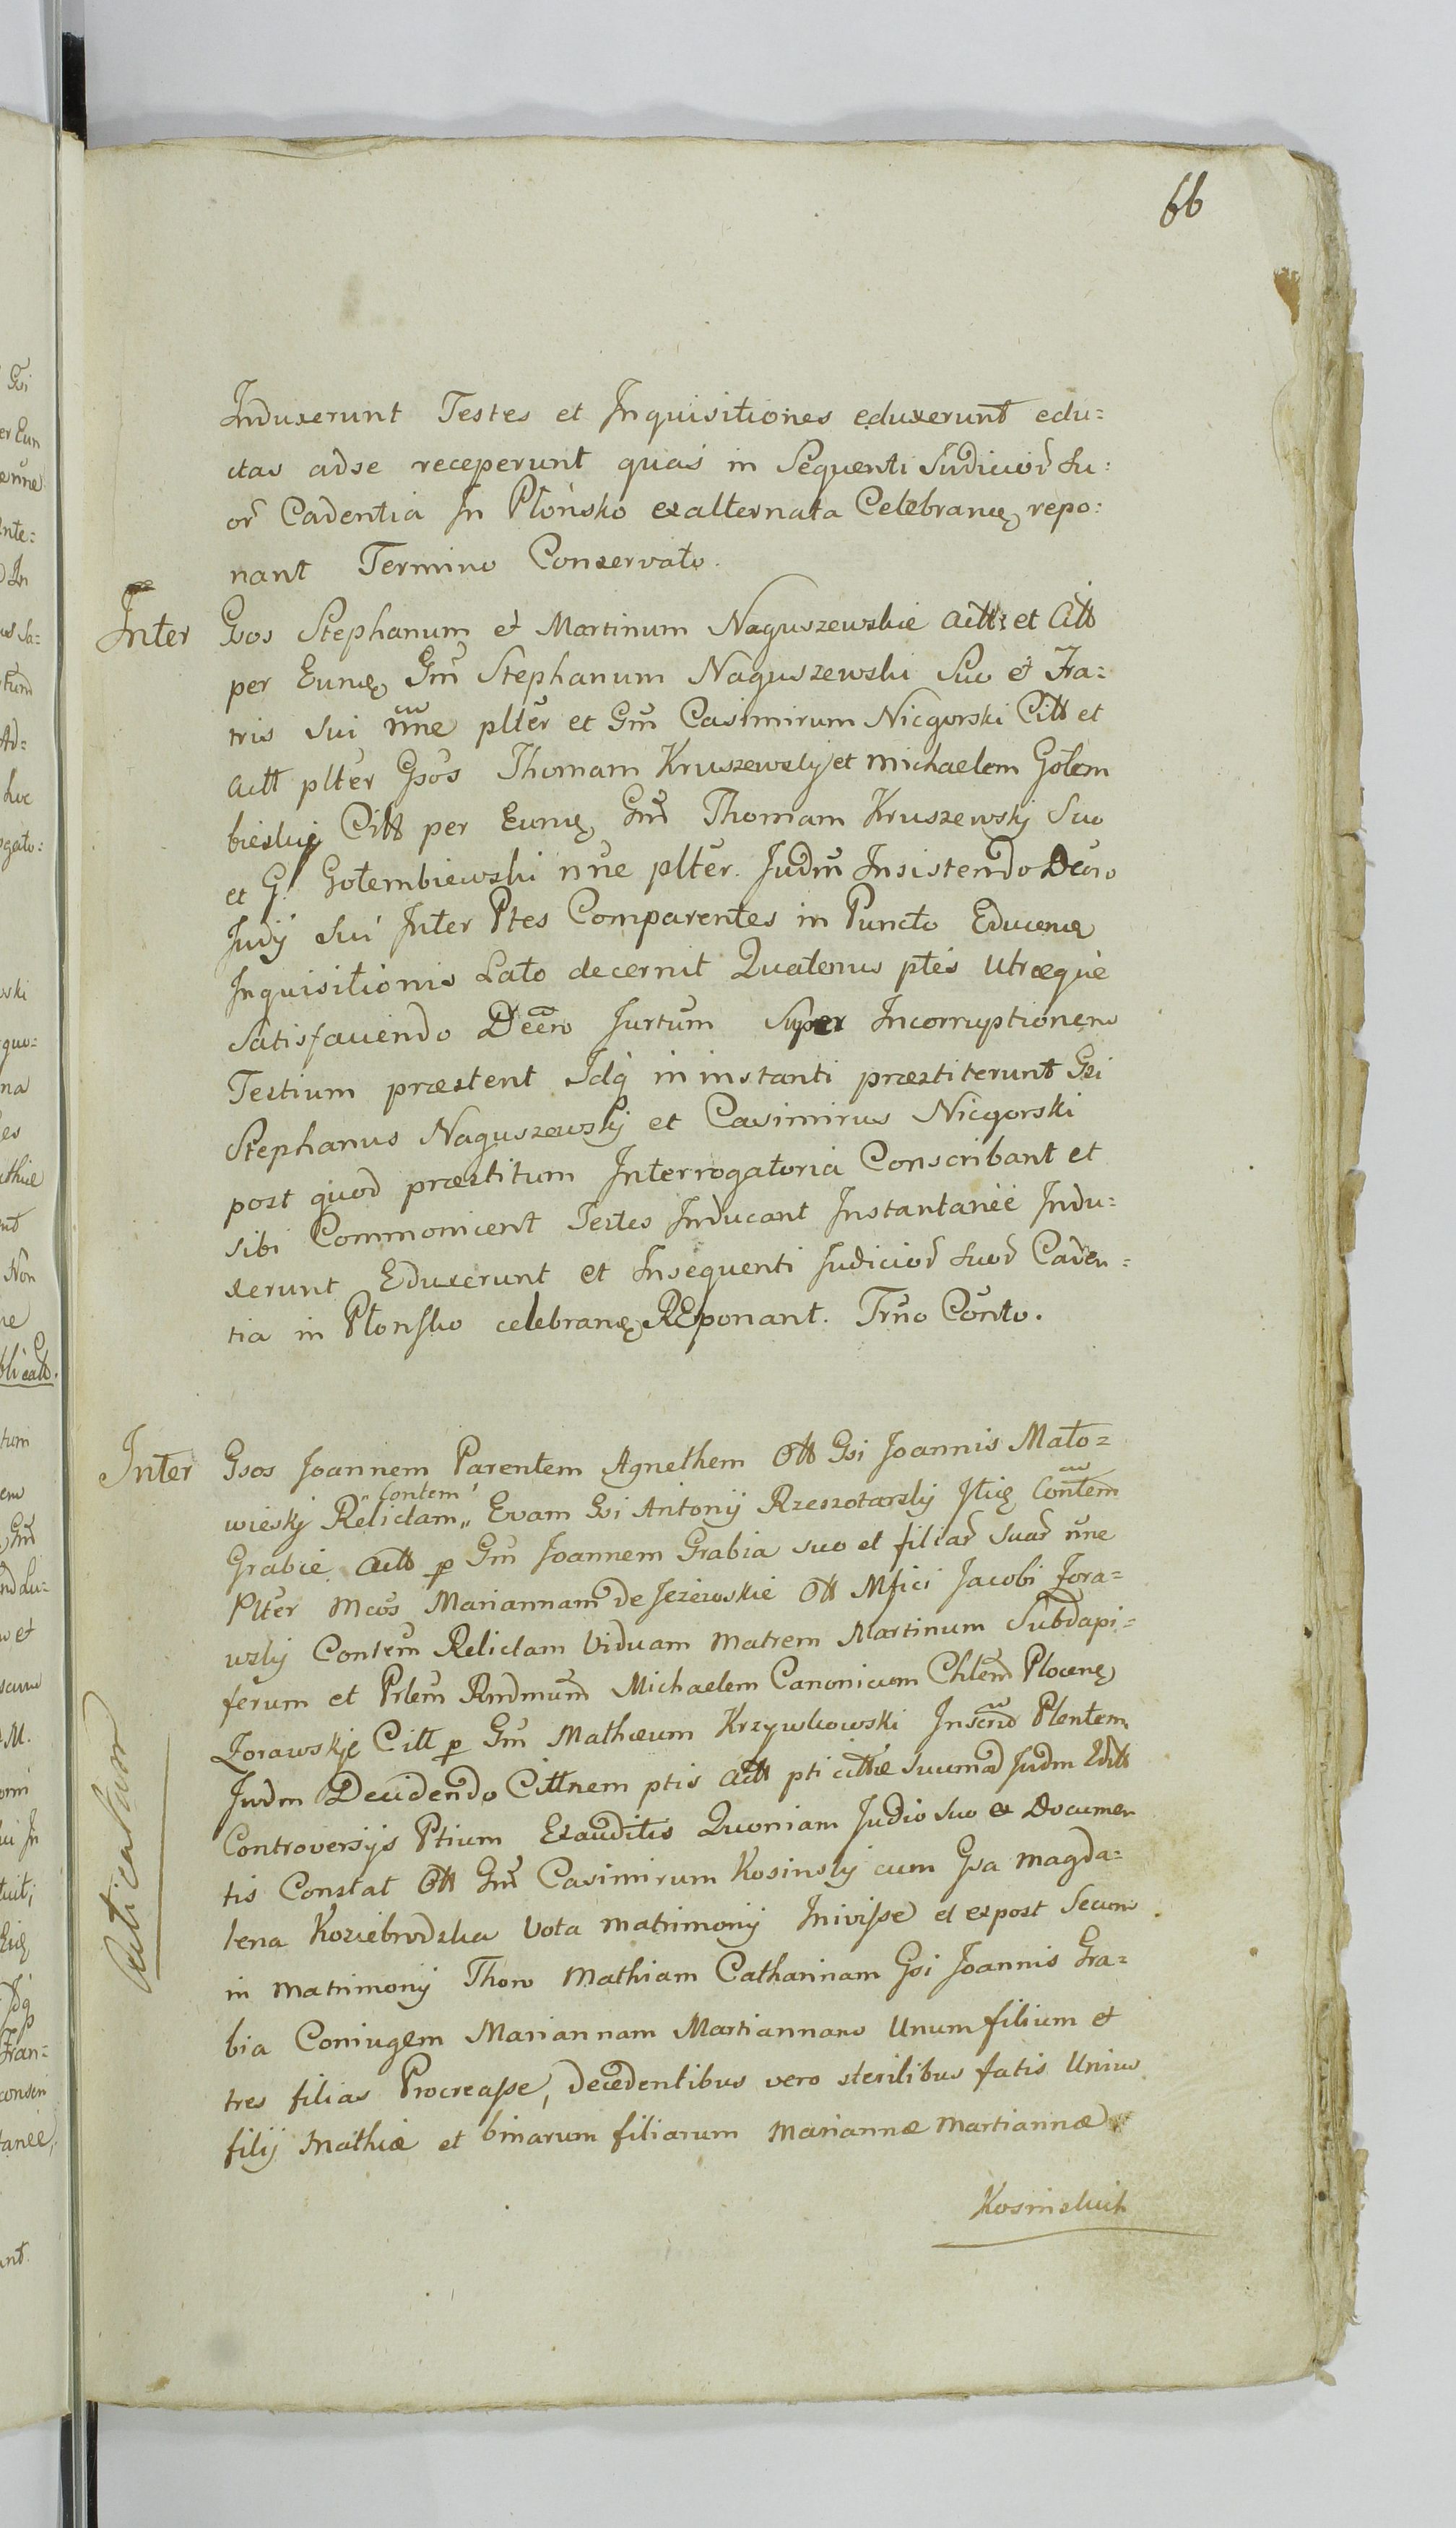 66
Induxerunt Testes et Inquisitiones eduxerunt edu=
ctas adse receperunt quas in Sequenti Judicior̃ Su=
or̃ Cadentia In Płońsko exalternata Celebranę repo=
nant Termino Conservato.
Inter Gsos Stephanum et Martinum Naguszewskie Actt et Citt
per Eunę Gm̃ Stephanum Naguszewski Suo et Fra=
tris sui ñne plter et Gm̃ Casimirum Nicgorski Citt et
Actt plter Gsos Thomam Kruszewskj et Michaelem Gołem
bieskie Citt per Eunę Gm̃ Thomam Kruszewskj Suo
et G. Gołembiewski ñne plter. Judm̃ Insistendo Decro
Judij Sui Inter Ptes Comparentes in Puncto Educenę
Inquisitionis Lato decernit Quatenus ptes utræque
satisfaciendo Decro Jurtum Super Incorruptionem
Testium præstent Idq in instanti præstiterunt Gsi
Stephanus Naguszewskj et Casimirus Nicgorski
post quod præstitum Interrogatoria Conscribant et
sibi Commonicent Testes Inducant Instantanee Indu=
xerunt Eduxerunt et Insequenti Judicior̃ Suor̃ Caden=
tia in Płonsko celebranę REponant. Trño Coñto.
Inter Gsos Joannem Parentem Agnethem Ott Gsi Joannis Mało=
wieskj Relictam „Contem„ Evam Gsi Antonij Rzeszotarskj Jtię Contem
Grabie Actt p Gm̃ Joannem Grabia suo et filiar̃ suar̃ ñne
Plter Mcos Mariannam de Jeżewskie Ott Mfici Jacobi Żora=
wskj Contem̃ Relictam Viduam Matrem Martinum Subdapi=
ferum et Prlem̃ Rndmum̃ Michaelem Canonicum Chlem̃ Plocenę
Żorawskie Citt p Gm̃ Mathæum Krzywkowski Plentem
Judm Decidendo Cittnem ptis Actt pti citthæ Judm
Controversijs Ptium Exauditis Quoniam Judio Suo ex Documen
tis Constat Ott Gm̃ Casimirum Kosinskj cum Gsa Magda=
lena Koziebrodzka Vota Matrimonij Inivisse et expost Secum
in Matrimonij Thoro Mathiam Catharinam Gsi Joannis Gra=
bia Coniugem Mariannam Martiannam Unum filium et
tres filias Procreasse, decedentibus vero sterilibus fatis Unius
filij Mathiæ et binarum filiarum Mariannæ Martiannæ
Kosinskich